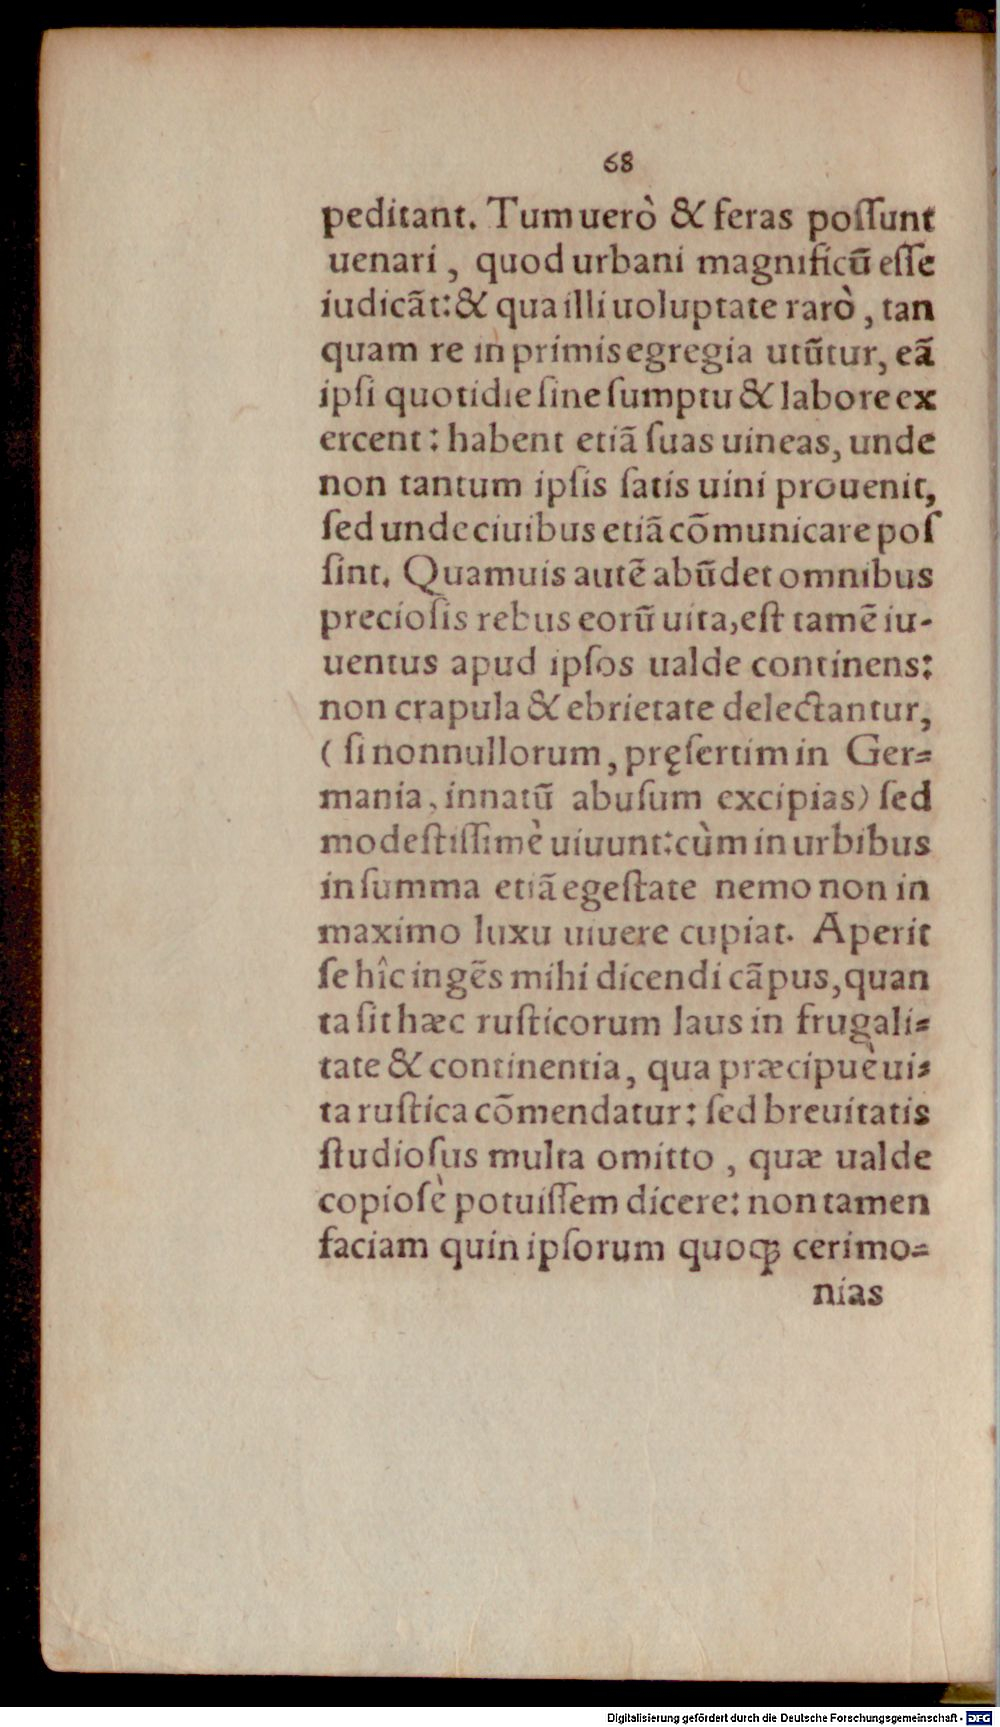 68
peditant. Tum uerò & feras poſſunt
uenari, quod urbani magnificũ eſſe
iudicãt: & qua illi uoluptate rarò, tan
quam re in primis egregia utũtur, eã
ipſi quotidie ſine ſumptu & labore ex
ercent: habent etiã ſuas uineas, unde
non tantum ipſis ſatis uini prouenit,
ſed unde ciuibus etiã cõmunicare poſ
ſint. Quamuis autẽ abũdet omnibus
precioſis rebus eorũ uita, eſt tamẽ iu-
uentus apud ipſos ualde continens:
non crapula & ebrietate delectantur,
( ſi nonnullorum, pręſertim in Ger=
mania, innatũ abuſum excipias) ſed
modeſtiſſimè uiuunt: cùm in urbibus
in ſumma etiã egeſtate nemo non in
maximo luxu uiuere cupiat. Aperit
ſe hîc ingẽs mihi dicendi cãpus, quan
ta ſit hæc ruſticorum laus in frugali=
tate & continentia, qua præcipuè ui=
ta ruſtica cõmendatur: ſed breuitatis
ſtudioſus multa omitto, quæ ualde
copioſè potuiſſem dicere: non tamen
faciam quin ipſorum quoqꝫ cerimo=
nias
Digitalisierung gefördert durch die Deutsche Forschungsgemeinschaft - DFG